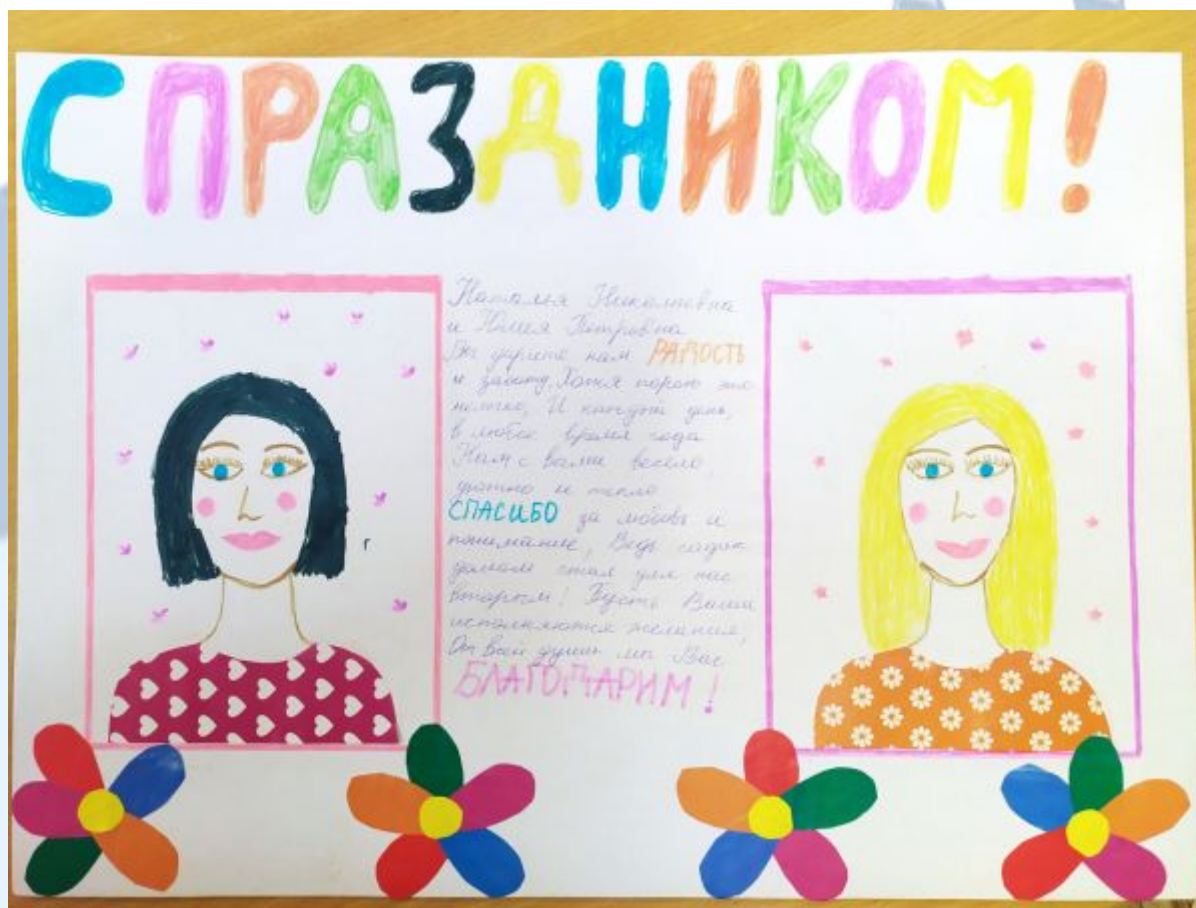 С ПРАЗДНИКОМ!
Наталья Николаевна
и Юлия Петровна
Вы дарите нам РАДОСТЬ
и заботу, Хотя порою это
нелегко, И каждый день,
в любое время года
Нам с вами весело,
уютно и тепло
СПАСИБО за любовь и
понимание, Ведь садик
домом стал для нас
вторым! Пусть Ваши
исполняются желания,
От всей души мы Вас
БЛАГОДАРИМ!
г